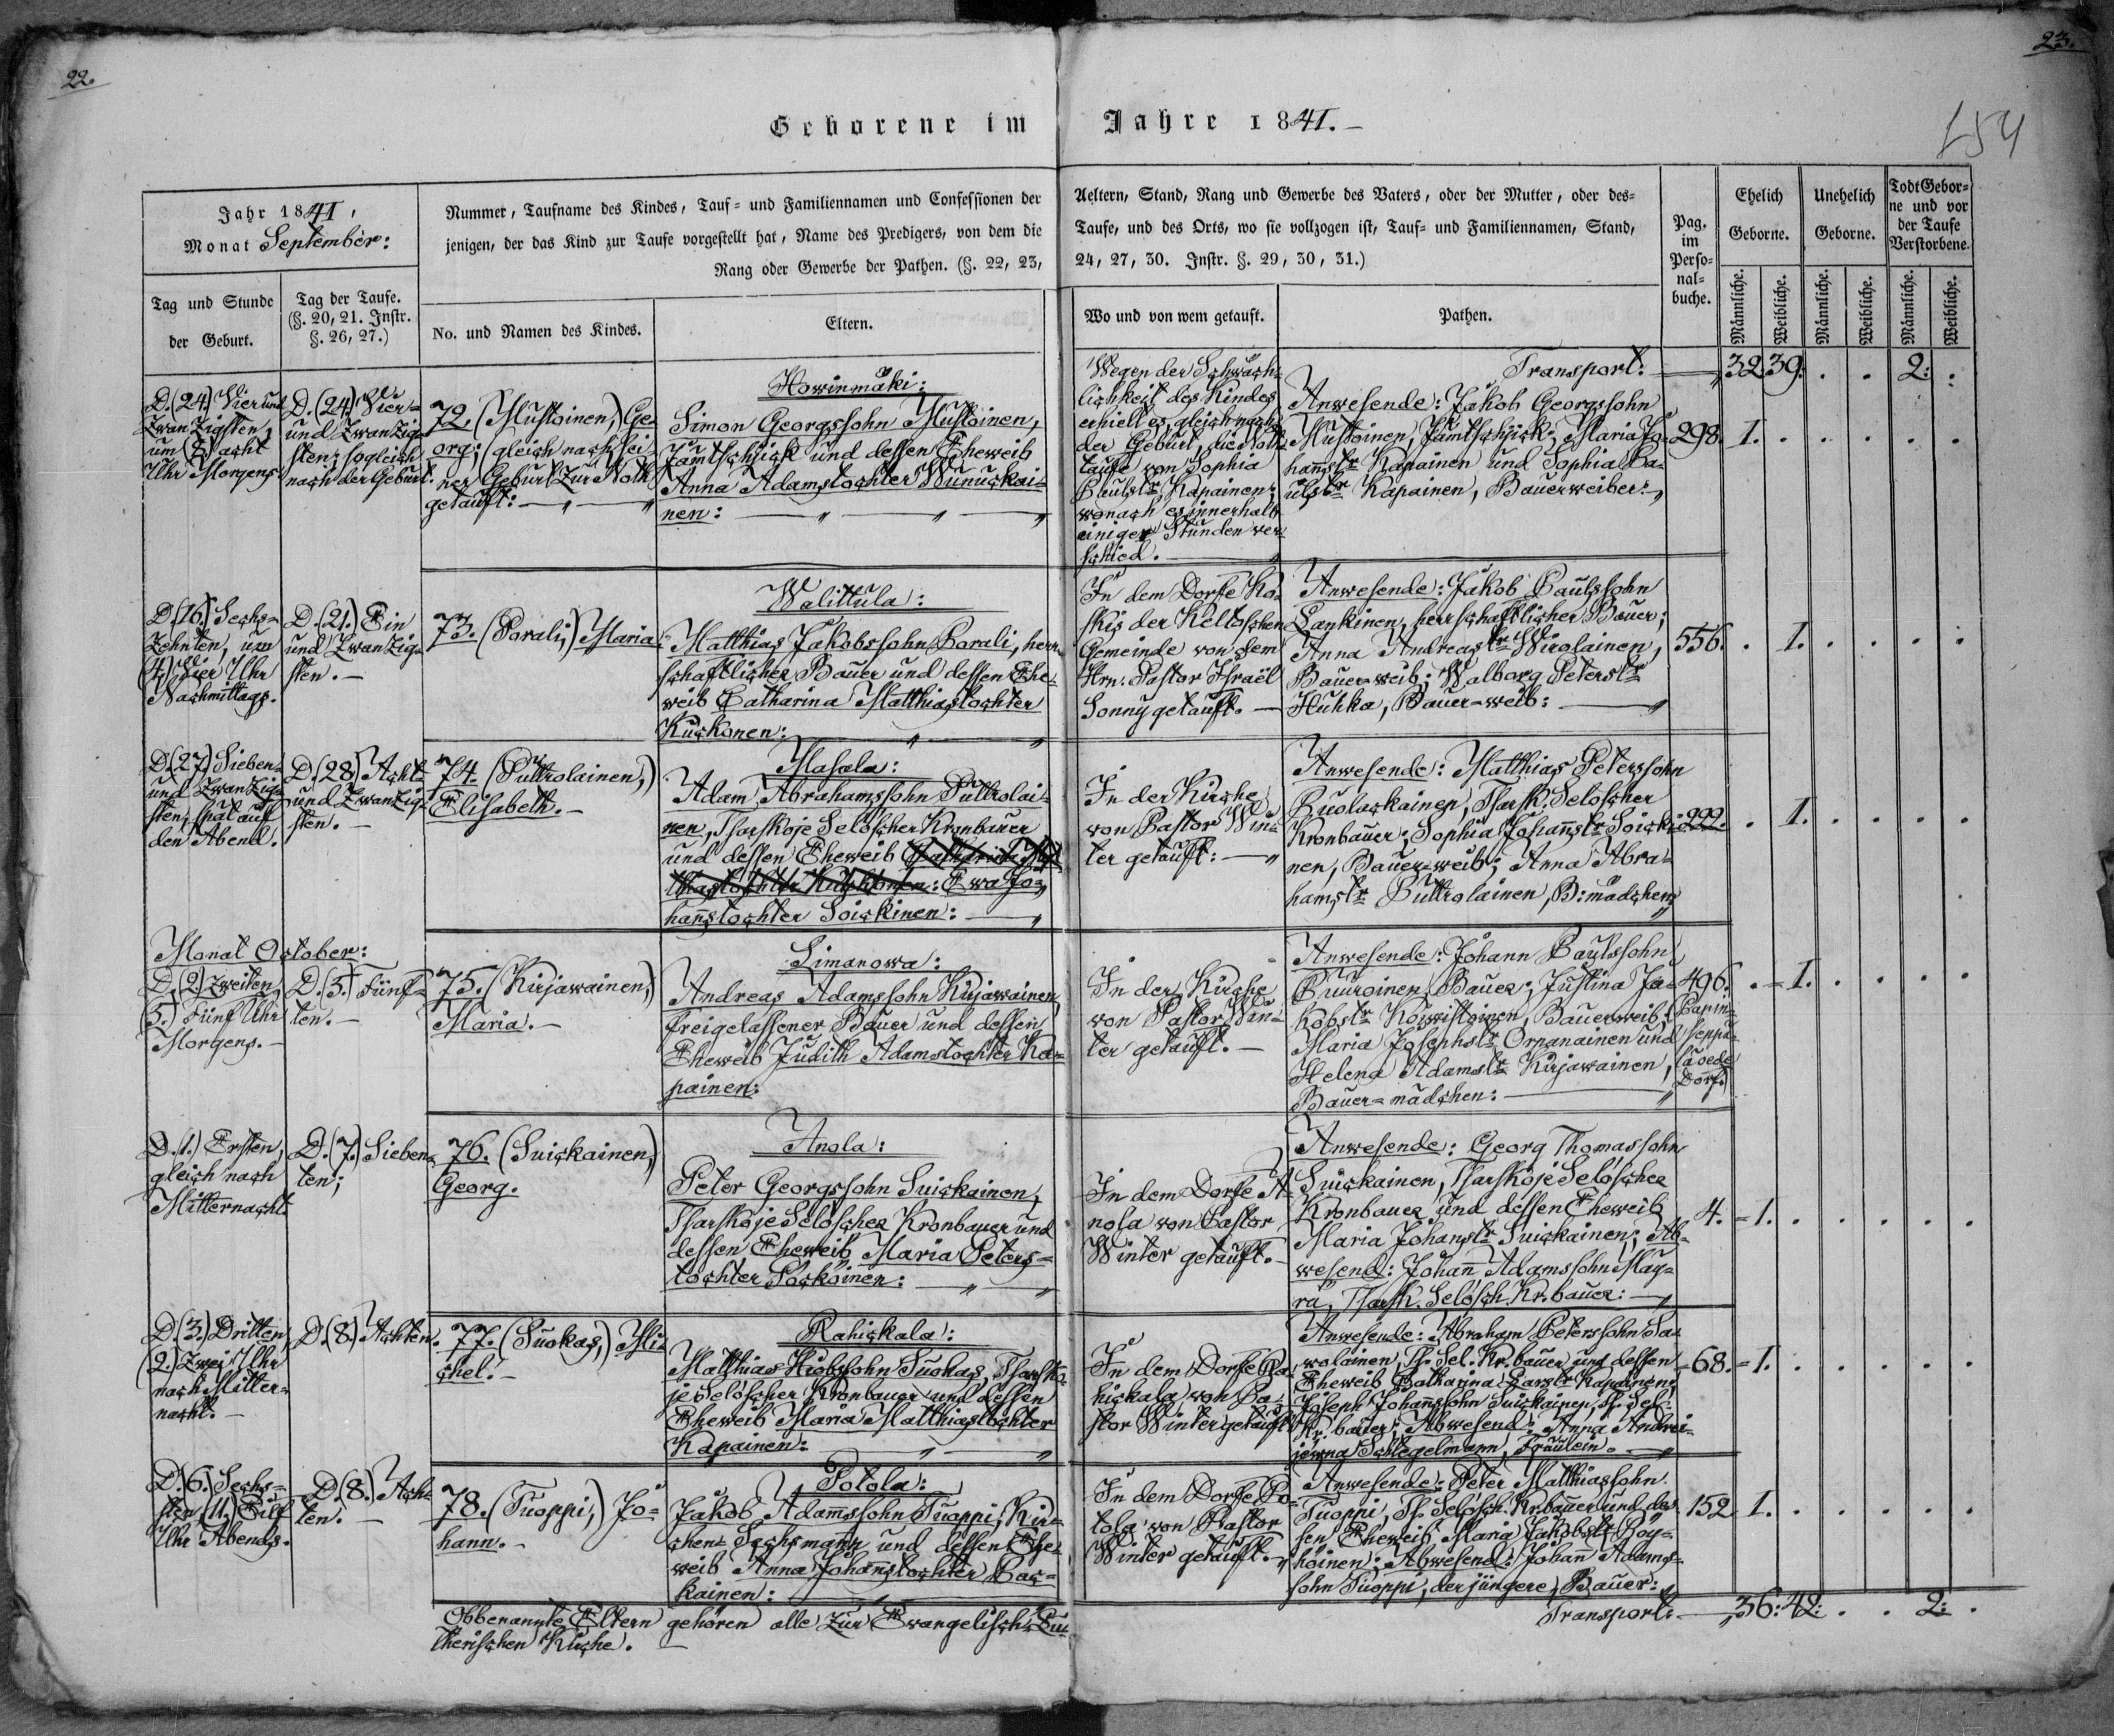 22.
23.
154
Geborene im Jahre 1841.
Jahr 1841,
Monat September:
Nummer, Taufname des Kindes, Tauf- und Familiennamen und Confessionen der
Aeltern, Stand, Rang und Gewerbe des Vaters, oder der Mutter, oder des-
jenigen, der das Kind zur Taufe vorgestellt hat, Name des Predigers, von dem die
Taufe, und des Orts, wo sie vollzogen ist, Tauf- und Familiennamen, Stand,
Rang oder Gewerbe der Pathen. (§. 22, 23,
24, 27, 30. Instr. §. 29, 30, 31.)
Tag und Stunde
der Geburt.
Tag der Taufe.
(§. 20, 21. Instr.
§. 26, 27.)
No. und Namen des Kindes.
Eltern.
Wo und von wem getauft.
Pathen.
Pag.
im
Perso-
nal-
buche.
Ehelich
Geborne.
Unehelich
Geborne.
TodtGebor-
ne und vor
der Taufe
Verstorbene.
Männliche.
Weibliche.
Männliche.
Weibliche.
Männliche.
Weibliche.
Transport. 32 39. . . 2: .
D. (24.) Vier und
zwanzigsten,
um (8) acht
Uhr Morgens
D. (24.) Vier-
und zwanzig-
sten; sogleich
nach der Geburt.
72. (Mustoinen,) Ge-
org; (gleich nach sei-
ner Geburt zur Noth
getauft:
Howinmäki:
Simon Georgssohn Mustoinen,
Jämtschick und dessen Eheweib
Anna Adamstochter Wunuckai-
nen:
Wegen der Schwäch-
lichkeit des Kindes
erhielt es, gleich nach
der Geburt, die Noth-
taufe von Sophia
Paulstr Kapainen;
wonach es innerhalb
einiger Stunden ver-
schied.
Anwesende: Jakob Georgssohn
Mustoinen, Jämtschick; Maria Jo-
hannstr Kapainen und Sophia Pa-
ulstr Kapainen, Bauerweiber:
298. 1. . . . . .
D. (16.) Sechs-
zehnten, um
(4.) Vier Uhr
Nachmittags.
D. (21.) Ein
und zwanzig-
sten.
73. (Porali,) Maria
Walittula:
Matthias Jakobssohn Porali, herr-
schaftlicher Bauer und dessen Ehe-
weib Catharina Matthiastochter
Kuckonen:
In dem Dorfe Ko-
skis der Keltoschen
Gemeinde von dem
Hrn. Pastor Israël
Sonny getauft.
Anwesende: Jakob Paulssohn
Lankinen, herrschaftlicher Bauer;
Anna Andreastr Wirolainen,
Bauer-weib; Walborg Peterstr
Huhka, Bauer-weib:
556. . 1. . . . .
D. (27.) Sieben-
und zwanzig-
sten, spät auf
den Abend.
D. (28.) Acht-
und zwanzig-
sten.
74. (Puttrolainen,)
Elisabeth.
Masala:
Adam Abrahamssohn Puttrolai-
nen, Tsarskoje Seloscher Kronbauer
und dessen Eheweib Catharina Mat-
thiastochter Kuckonen: Ewa Jo-
hannstochter Soickinen:
In der Kirche
von Pastor Win-
ter getauft:
Anwesende: Matthias Peterssohn
Ruolackainen, Tsarsk. Seloscher
Kronbauer; Sophia Johannstr Soicki-
nen, Bauer-weib; Anna Abra-
hamstr Puttrolainen, B: mädchen:
222. . 1. . . . .
Monat October:
D. (2.) zweiten,
(5.) Fünf Uhr
Morgens.
D. (5.) Fünf-
ten.
75. (Kirjawainen,)
Maria.
Limanowa:
Andreas Adamssohn Kirjawainen,
freigelassener Bauer und dessen
Eheweib Judith Adamstochter Ka-
painen:
In der Kirche
von Pastor Win-
ter getauft.
Anwesende: Johann Paulssohn
Puuroinen, Bauer; Justina Ja-
kobstr Koiwistoinen, Bauerweib;
Maria Josephstr Orpanainen und
Helena Adamstr Kirjawainen,
Bauer-mädchen:
496. . 1. . . . .
D. (1.) Ersten,
gleich nach
Mitternacht.
D. (7.) Sieben-
ten;
76. (Suickainen,)
Georg.
Anola:
Peter Georgssohn Suickainen,
Tsarskoje Seloscher Kronbauer und
dessen Eheweib Maria Peters-
tochter Pöckoinen:
In dem Dorfe A-
nola von Pastor
Winter getauft.
Anwesende: Georg Thomassohn
Suickainen, Tsarskoje Seloscher
Kronbauer und dessen Eheweib
Maria Johanstr Suickainen; Ab-
wesend: Johann Adamssohn May-
rä, Tsarsk. Selosch. Kr. bauer:
4. 1. . . . . .
D. (3.) Dritten,
(2.) zwei Uhr
nach Mitter-
nacht.
D. (8.) Achten.
77. (Suokas,) Mi-
chel.
Rahickala:
Matthias Hiobssohn Suokas, Tsarsko-
je Seloscher Kronbauer und dessen
Eheweib Maria Matthiastochter
Kapainen:
In dem Dorfe Ra-
hickala von Pa-
stor Winter getauft
Anwesende: Abraham Peterssohn Sa-
wolainen, Ts. Sel. Kr. bauer und dessen
Eheweib Catharina Larstr Kapainen;
Joseph Johannssohn Suickainen, Ts. Sel.
Kr. bauer; Abwesend: Anna Andre-
jewna Schlegelmann, Fräulein.
68. 1. . . . . .
D. (6.) Sechs-
sten (11.) Eilf
Uhr Abends.
D. (8.) Ach-
ten.
78. (Tuoppi,) Jo-
hann.
Potola:
Jakob Adamssohn Tuoppi, Kir-
chen-Sechsmann und dessen Ehe-
weib Anna Johannstochter Pac-
kainen:
In dem Dorfe Po-
tola von Pastor
Winter getauft.
Anwesende: Peter Matthiassohn
Tuoppi, Ts. Selosch. Kr. bauer und des-
sen Eheweib Maria Jakobstr Roy-
höinen; Abwesend: Johann Adams-
sohn Tuoppi, der jüngere, Bauer:
152 1. . . . . .
Obbenannte Eltern gehören alle zur Evangelisch-Lu-
therischen Kirche.
Transport: 36: 42: . . 2: .